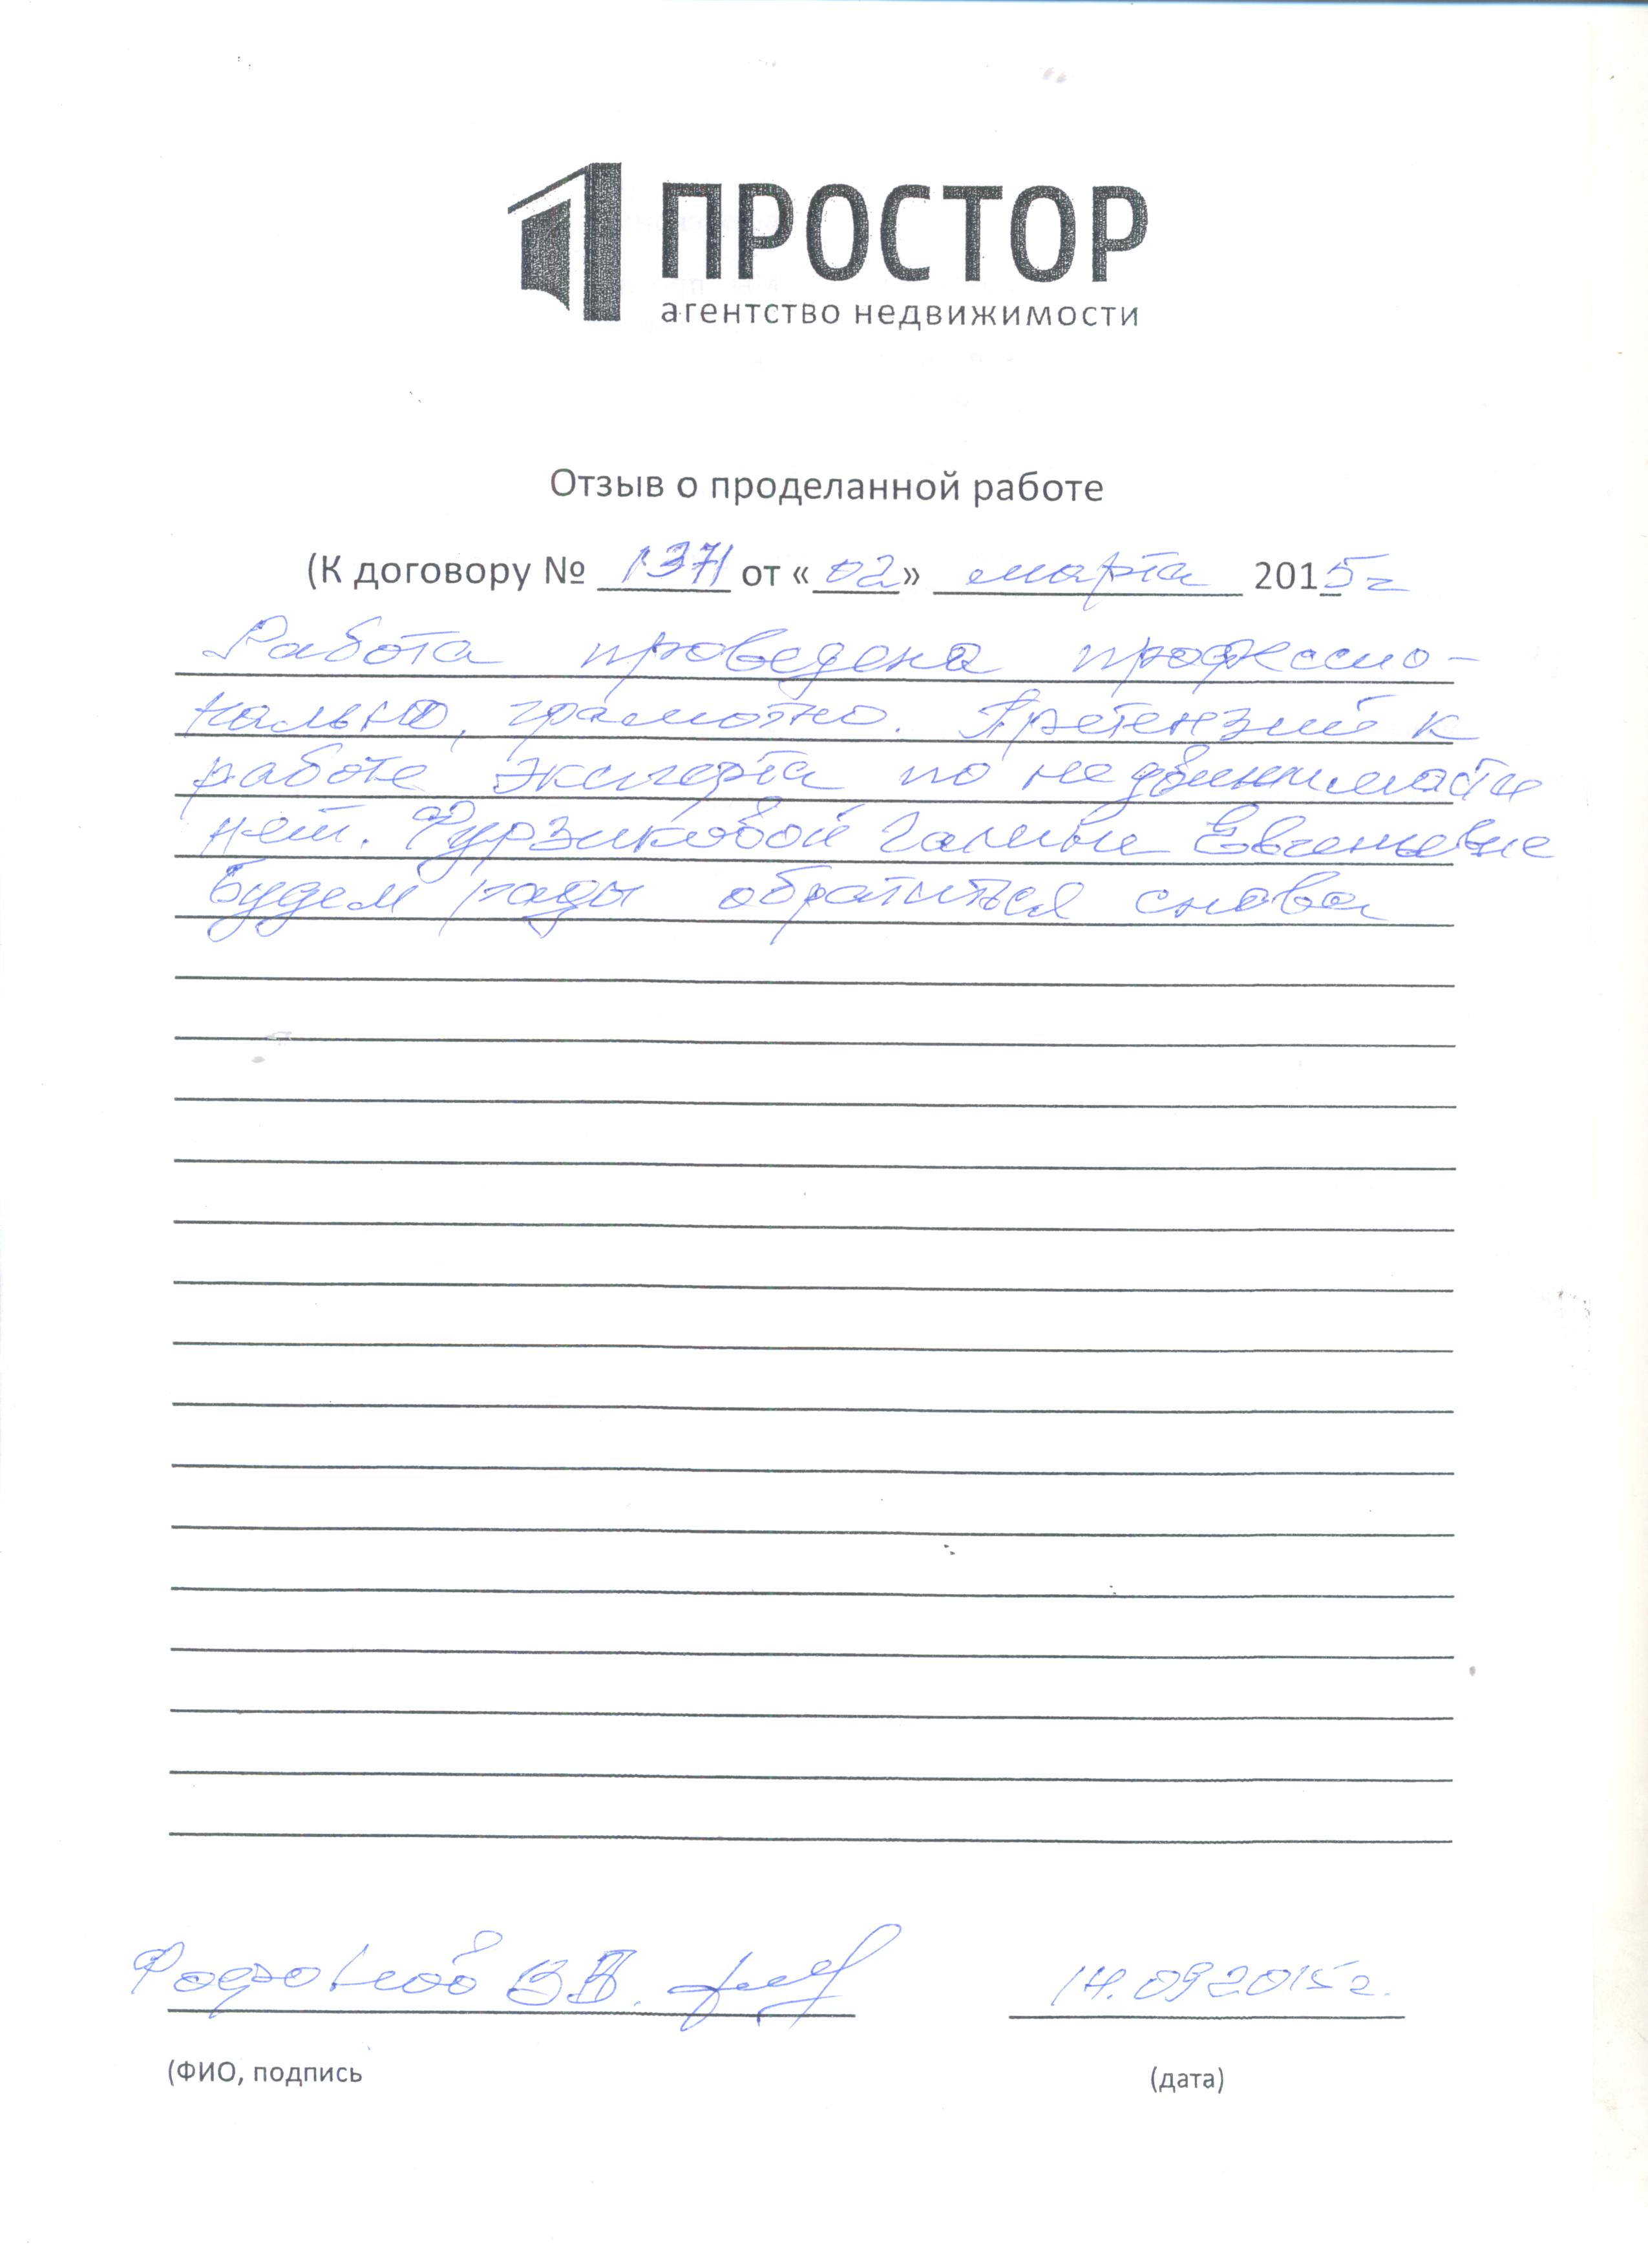 ПРОСТОР
агентство недвижимости
Отзыв о проделанной работе
(К договору № 1371 от «02» марта 2015г
Работа проведена профессио-
нально, грамотно. Претензий к
работе эксперта по недвижимости
нет. Фурзиковой Галине Евгеньевне
Будем рады обратиться снова
В.В.
14.09 2015г.
(ФИО, подпись
(дата)